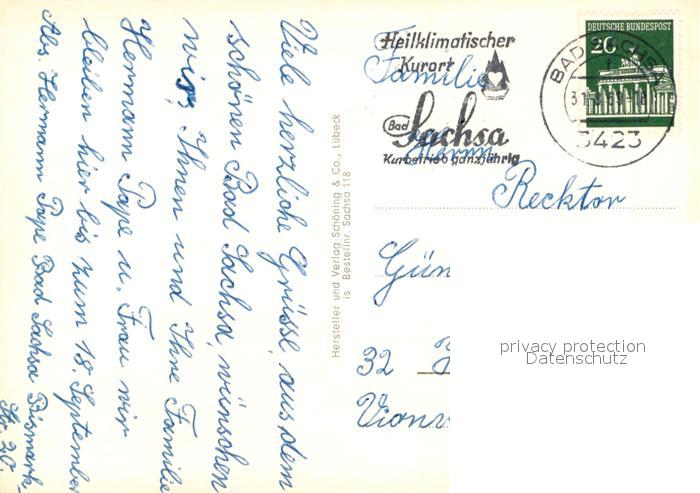 Viele herzliche Grüsse, aus dem
schönen Bad Sachsa, wünschen
wir, Ihnen und Ihre Familie
Hermann Pape u. Frau wir
bleiben hier bis zum 18. September
Abs. Hermann Pape Bad Sachsa Bismark-
Str. 20.
Hersteller und Verlag Schöning & Co., Lübeck
is Bestellnr. Sachsa 118
Heilklimatischer
Kurort
Bad Sachsa
Kurbetrieb ganzjährig
DEUTSCHE BUNDESPOST
20
BAD SACHSA
3423
Familie
Herrn
Recktor
Gün
32
privacy protection
Datenschutz